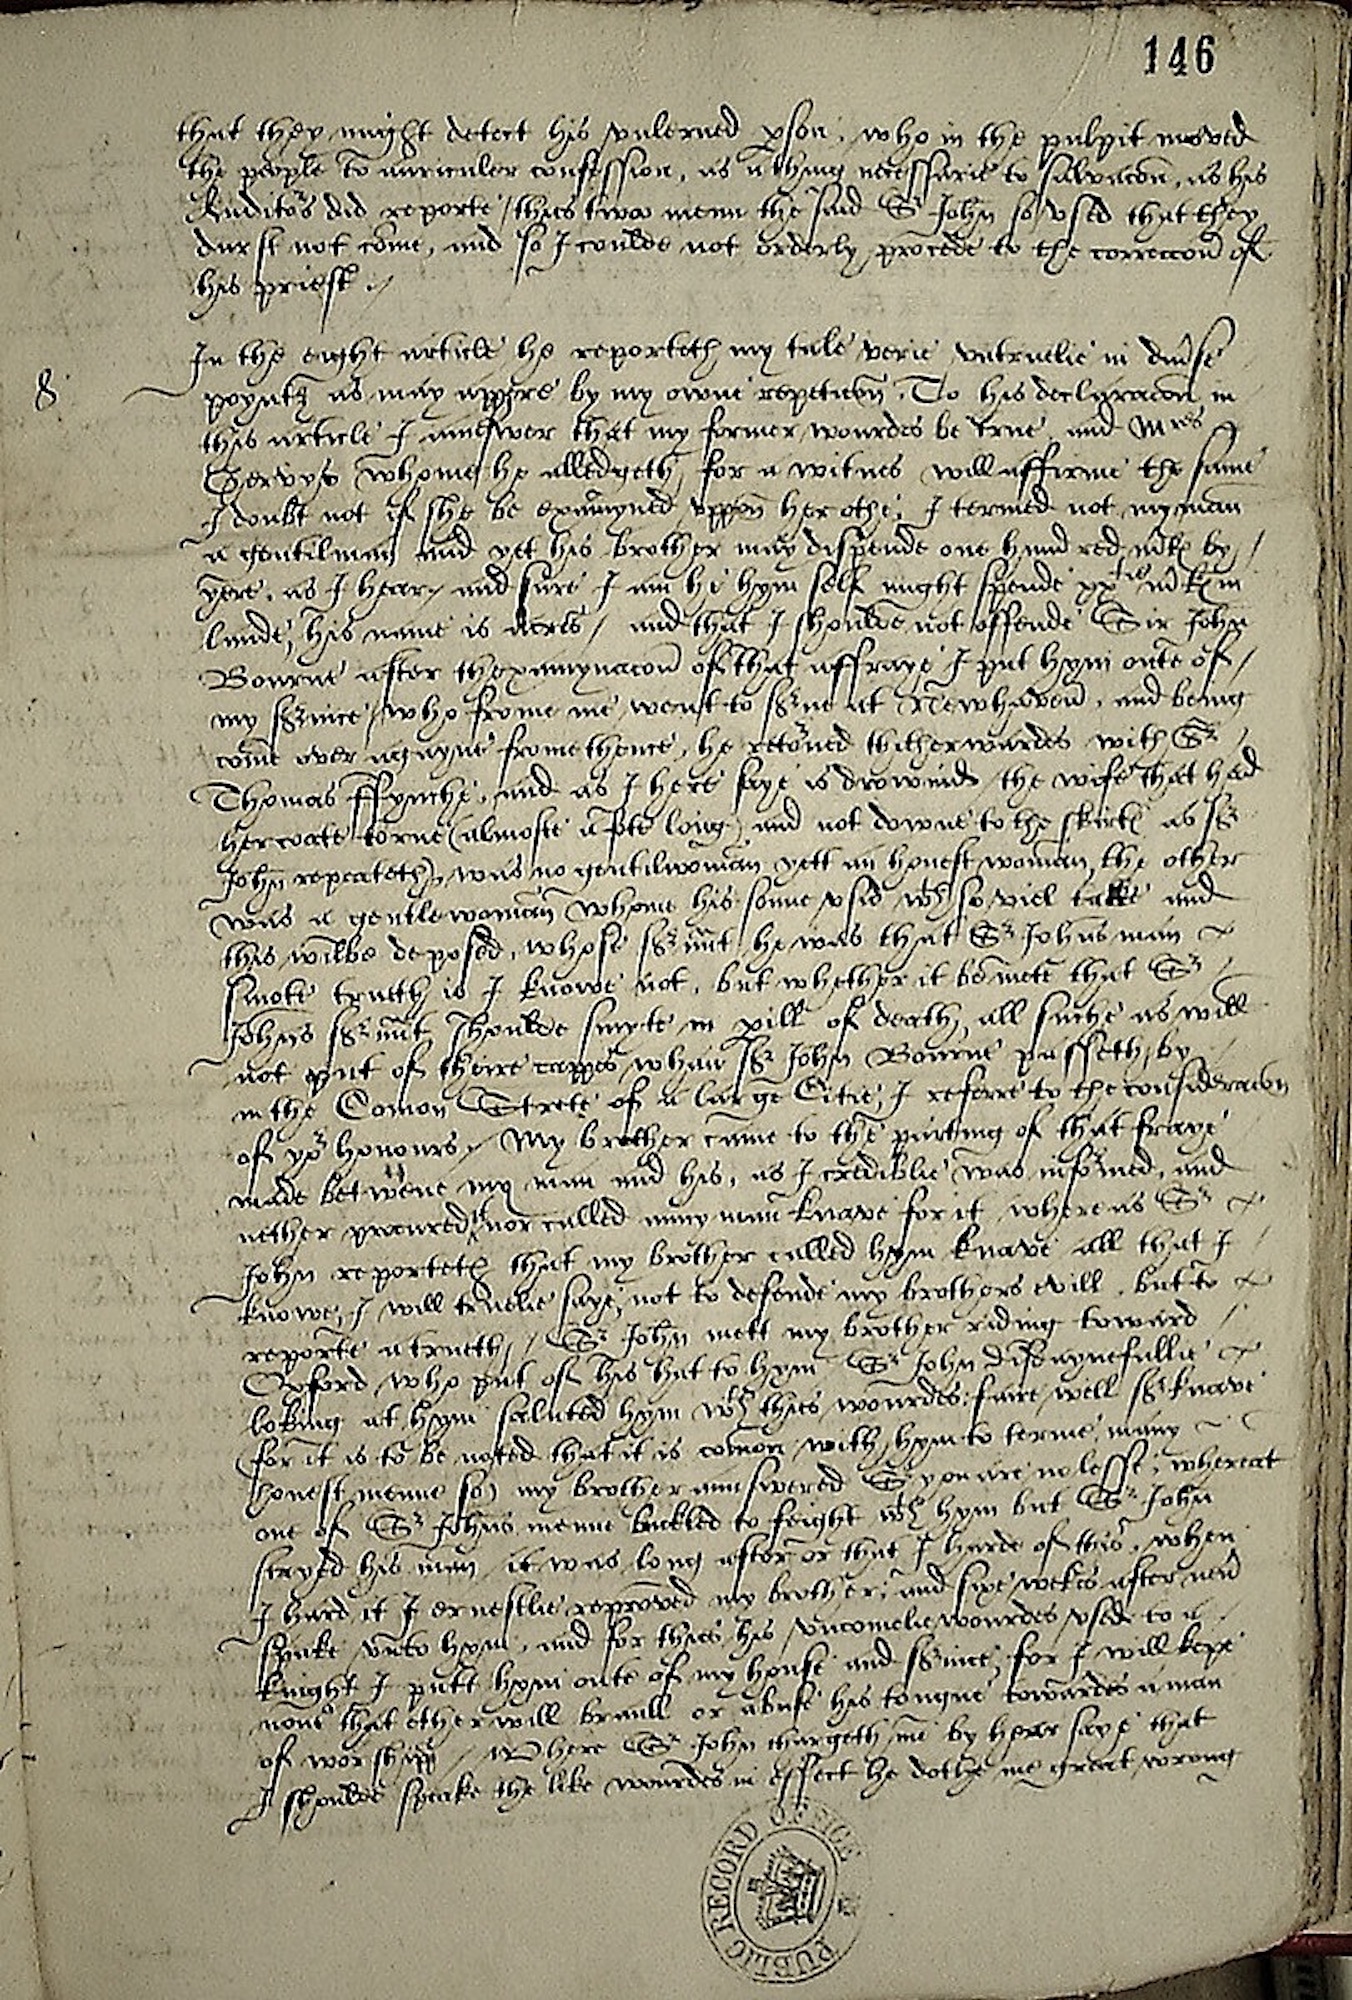 146
that they might detect his vnlerned pson, who in the pulpit moved
the people to auriculer confession, as a thing necessarie to salvacon, as his
Auditors did reporte / thies twoo menn the said Sr John so vsed that they
durst not come, and so I coulde not orderly procede to the correccon of
his priest.
8 In the eight article he reporteth my tale verie vntruelie in diuse
poynts as may appere by my owne repeticon. To his declaracon in
this article I aunswer that my former wourdes be true, and Mres
Gervys whome he alledgeth for a witnes will affirme the same
I doubt not if she be examyned vppon her othe; I termed not my man
a gentilman and yet his brother may dispende one hundred mks by
yere, as I hear, and sure I am he hym self might spende xxtie mks in
lande, his name is Acres / and that I shoulde not offende Sir John
Bourne after thexamynacon of that affraye I put hym oute of
my sruice / who frome me went to srue at Newhaven, and being
come over agayne frome thence, he retorned thitherwardes with Sr
Thomas ffynche, and as I here saye is drowind / the wife that had
her coate torne (almoste a pte long, and not downe to the skirts as Sr
John repeateth) was no gentilwoman yett an honest woman, the other
was a gentlewoman whome his sonne vsid wth so viel talke and
this wilbe deposed, whose sruant he was that Sr Johns man
smote trueth is I knowe not, but whether it be mete that Sr
Johns sruant shoulde smyte in pill of death, all suche as will
not put of theire cappes whan Sr John Bourne passeth by
in the Comon Strete of a large Citie, I referre to the consideracon
of yor honours / My brother came to the parting of that fraye
made betwene my man and his, as I crediblie was informed, and
nether procured, nor called anny man knave for it / where as Sr
John reporteth that my brother called hym knave all that I
knowe, I will truelie saye, not to defende my brothers evill, but to
reporte a trueth / Sr John mett my brother riding toward
Oxford who put of his hat to hym Sr John disdaynefullie
loking at hym saluted hym wth thies wourdes, faire well Sr knave
(for it is to be noted that it is comon with hym to terme many
honest menne so) my brother aunswered Sr you are no lesse; whereat
one of Sr Johns menne buckled to feight wth hym but Sr John
stayed his man / it was long after or that I harde of this, when
I hard it I ernestlie reproved my brother, and sixe wekes after nevr
spake vnto hym, and for thies his vncomelie wourdes vsed to a
knight I putt hym oute of my house and sruice, for I will kepe
none that ether will braull or abuse his tongue towardes a man
of worshipp / Where Sr John chargeth me by hear saye that
I shoulde speake the like wourdes in effect he dothe me great wrong
PUBLIC RECORD OFFICE